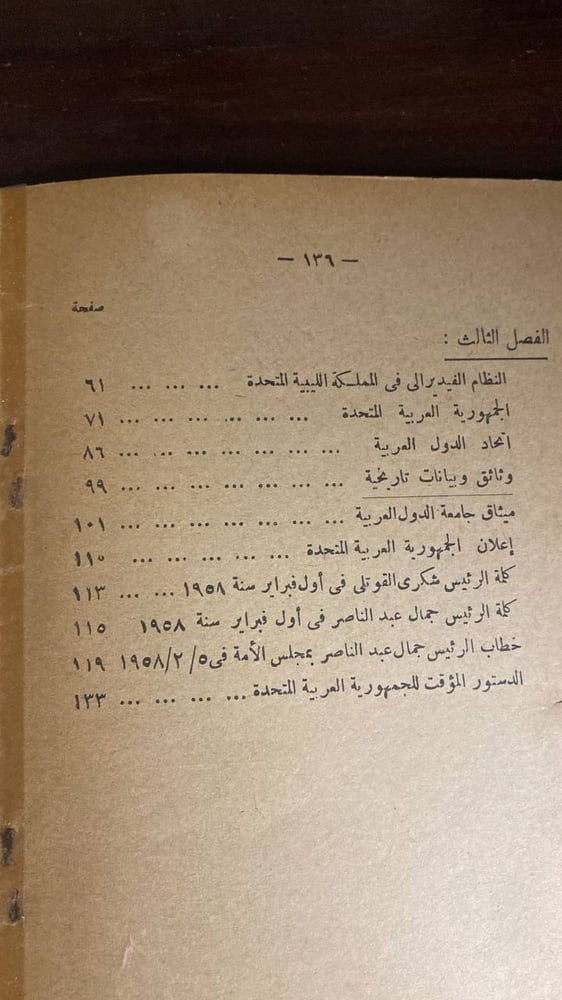 — ١٣٩ —
صفحة
الفصل الثالث :
النظام الفيديرالى فى المملكة الليبية المتحدة ... ... ... ٦١
الجمهورية العربية المتحدة ... ... ... ... ... ... ... ٧١
اتحاد الدول العربية ... ... ... ... ... ... ... ٨٦
وثائق وبيانات تاريخية ... ... ... ... ... ... ... ٩٩
ميثاق جامعة الدول العربية ... ... ... ... ... ... ... ١٠١
إعلان الجمهورية العربية المتحدة ... ... ... ... ... ١١٠
كلمة الرئيس شكرى القوتلى فى أول فبراير سنة ١٩٥٨ ... ... ١١٣
كلمة الرئيس جمال عبد الناصر فى أول فبراير سنة ١٩٥٨ ١١٥
خطاب الرئيس جمال عبد الناصر بمجلس الأمة فى ١٩٥٨/٢/٥ ١١٩
الدستور المؤقت للجمهورية العربية المتحدة ... ... ... ... ١٣٣